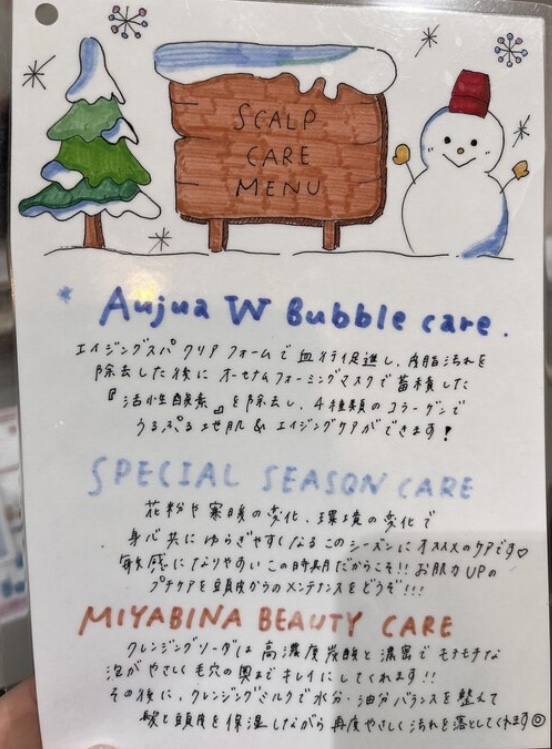 SCALP
CARE
MENU
Aujua W Bubble care.
エイジングスパ クリア フォームで 血行促進し、皮脂汚れを
除去した後に オーセナムフォーミングマスクで 蓄積した
『活性酸素』を除去し、4種類の コラーゲンで
うるぷる地肌 & エイジングケアができます!
SPECIAL SEASON CARE
花粉や寒暖の変化、環境の変化で
身心共にゆらぎやすくなるこのシーズンにオススメのケアです♡
敏感になりやすいこの時期だからこそ!! お肌力UPの
プチケアを頭皮からのメンテナンスをどうぞ!!!
MIYABINA BEAUTY CARE
クレンジングソーダは 高濃度炭酸と 濃密で モチモチな
泡がやさしく毛穴の奥までキレイにしてくれます!!
その後に、クレンジングミルクで水分・油分バランスを整えて
髪と頭皮を保湿しながら 再度やさしく汚れを落としてくれます◎